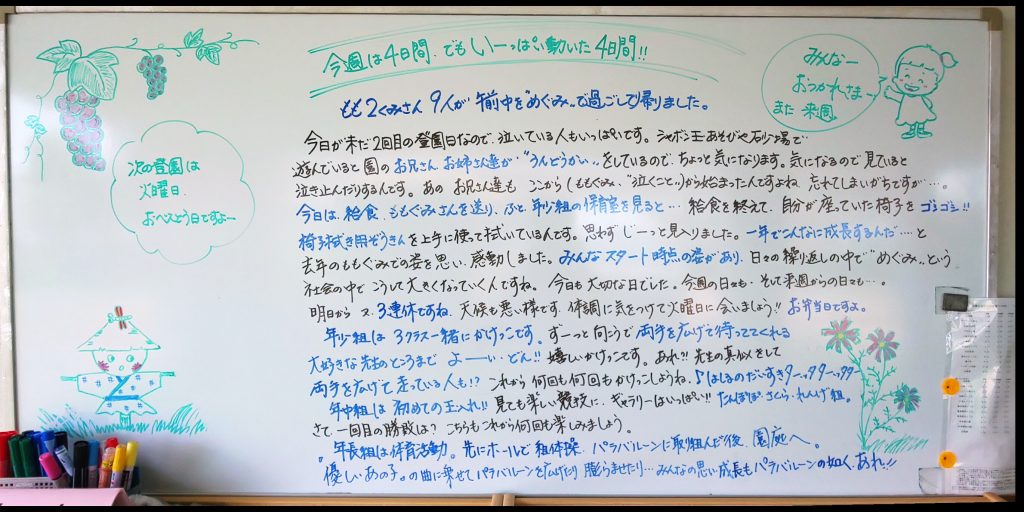 今週は4日間、でもいーっぱい動いた4日間!!
みんなー
おつかれさまー
また来週
もも2くみさん 9人が 午前中を"めぐみ"で過ごして帰りました。
次の登園は
火曜日
おべんとう日ですよー
今日がまだ2回目の登園日なので、泣いている人もいっぱいです。シャボン玉あそびや砂場で
遊んでいると園のお兄さんお姉さん達が"うんどうかい"をしているので、ちょっと気になります。気になるので見ていると
泣き止んだりするんです。あの お兄さん達も ここから(ももぐみ、"泣くこと")から始まった人ですよね 忘れてしまいがちですが…。
今日は、給食、ももぐみさんを送り、ふと、年少組の保育室を見ると… 給食を終えて、自分が座っていた椅子をゴシゴシ!!
椅子拭き用ぞうきんを上手に使って拭いているんです。思わずじーっと見入りました。一年でこんなに成長するんだ……と
去年のももぐみでの姿を思い、感動しました。みんなスタート時点の姿があり、日々の繰り返しの中で"めぐみ"という
社会の中で こうして大きくなっていく人ですね。今日も大切な日でした。今週の日々も…そして来週からの日々も…。
明日から 3連休ですね、天候も悪い様です。体調に気をつけて火曜日に会いましょう!! お弁当日ですよ。
年少組は 3クラス一緒にかけっこです。ずーっと向こうで両手を広げて待っててくれる
大好きな先生のところまで よーーい・どん!! 嬉しいかけっこです。あれ!! 先生の真似をして
両手を広げて走っている人も!? これから何回も何回もかけっこしようね、♪はしるのだいすきターッタターッタター
年中組は 初めての玉入れ!! 見ても楽しい競技に、ギャラリーはいっぱい!! たんぽぽ、さくら、れんげ組。
さて、一回目の勝敗は? こちらもこれから何回も楽しみましょう。
年長組は体育活動。先にホールで組体操、パラバルーンに取り組んだ後、園庭へ。
優しいあの子。の曲に乗せてパラバルーンを広げたり 膨らませたり… みんなの思い成長もパラバルーンの如く、あれ!!